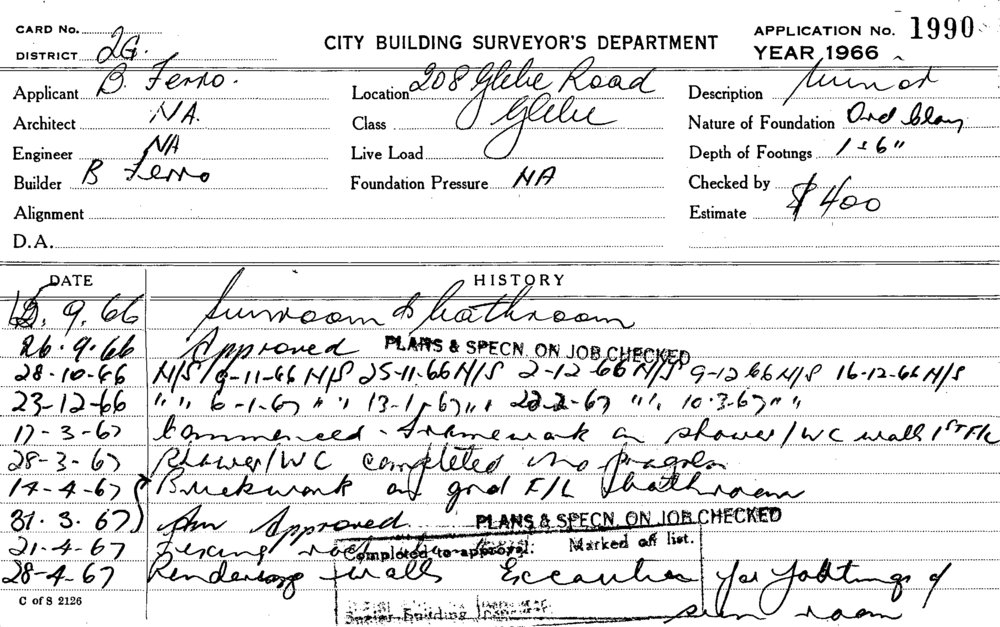 CARD No.
DISTRICT 2G.
CITY BUILDING SURVEYOR'S DEPARTMENT
APPLICATION No. 1990
YEAR 1966
Applicant B. Ferro.
Location 208 Glebe Road
Glebe
Description Minor
Architect NA.
Class
Nature of Foundation Ord Clay
Engineer NA
Live Load
Depth of Footings 1'6"
Builder B Ferro
Foundation Pressure NA
Checked by
Alignment
Estimate $400
D.A.
DATE HISTORY
12.9.66 Sunroom & bathroom
26.9.66 Approved PLANS & SPECN. ON JOB CHECKED
28-10-66 N/S 9-11-66 N/S 25-11-66 N/S 2-12-66 N/S 9-12-66 N/S 16-12-66 N/S
23-12-66 " " 6-1-67 " " 13-1-67 " " 22-2-67 " " 10-3-67 " "
17-3-67 Commenced - framework on shower/WC walls 1ST F/L
28-3-67 Shower/WC completed no progress
14-4-67 Brickwork on grd F/L bathroom
31.3.67 Am Approved. PLANS & SPECN. ON JOB CHECKED
21-4-67 Fixing
Completed to approval. Marked off list.
28-4-67 Rendering walls Excavation for footings of
sun room
C of S 2126
Building